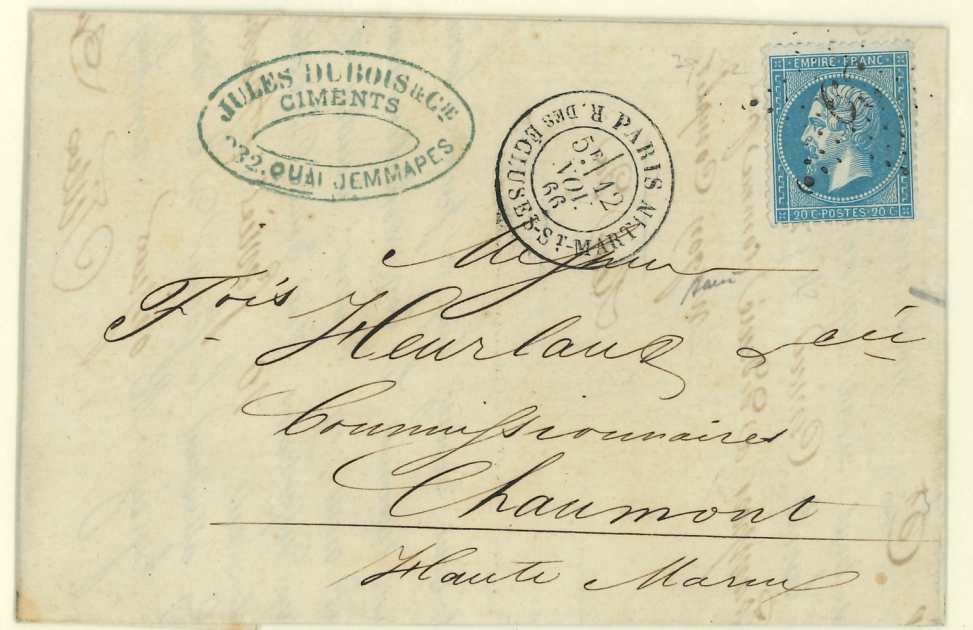 JULES DUBOIS & CIE
CIMENTS
232. QUAI JEMMAPES
PARIS
R. DES ECLUSES-ST-MARTIN
5E 12
NOV.
66
EMPIRE FRANC
20 C-POSTES-20 C
Messieurs
Fois Heurlaux
Commissionnaires
Chaumont
Haute Marne